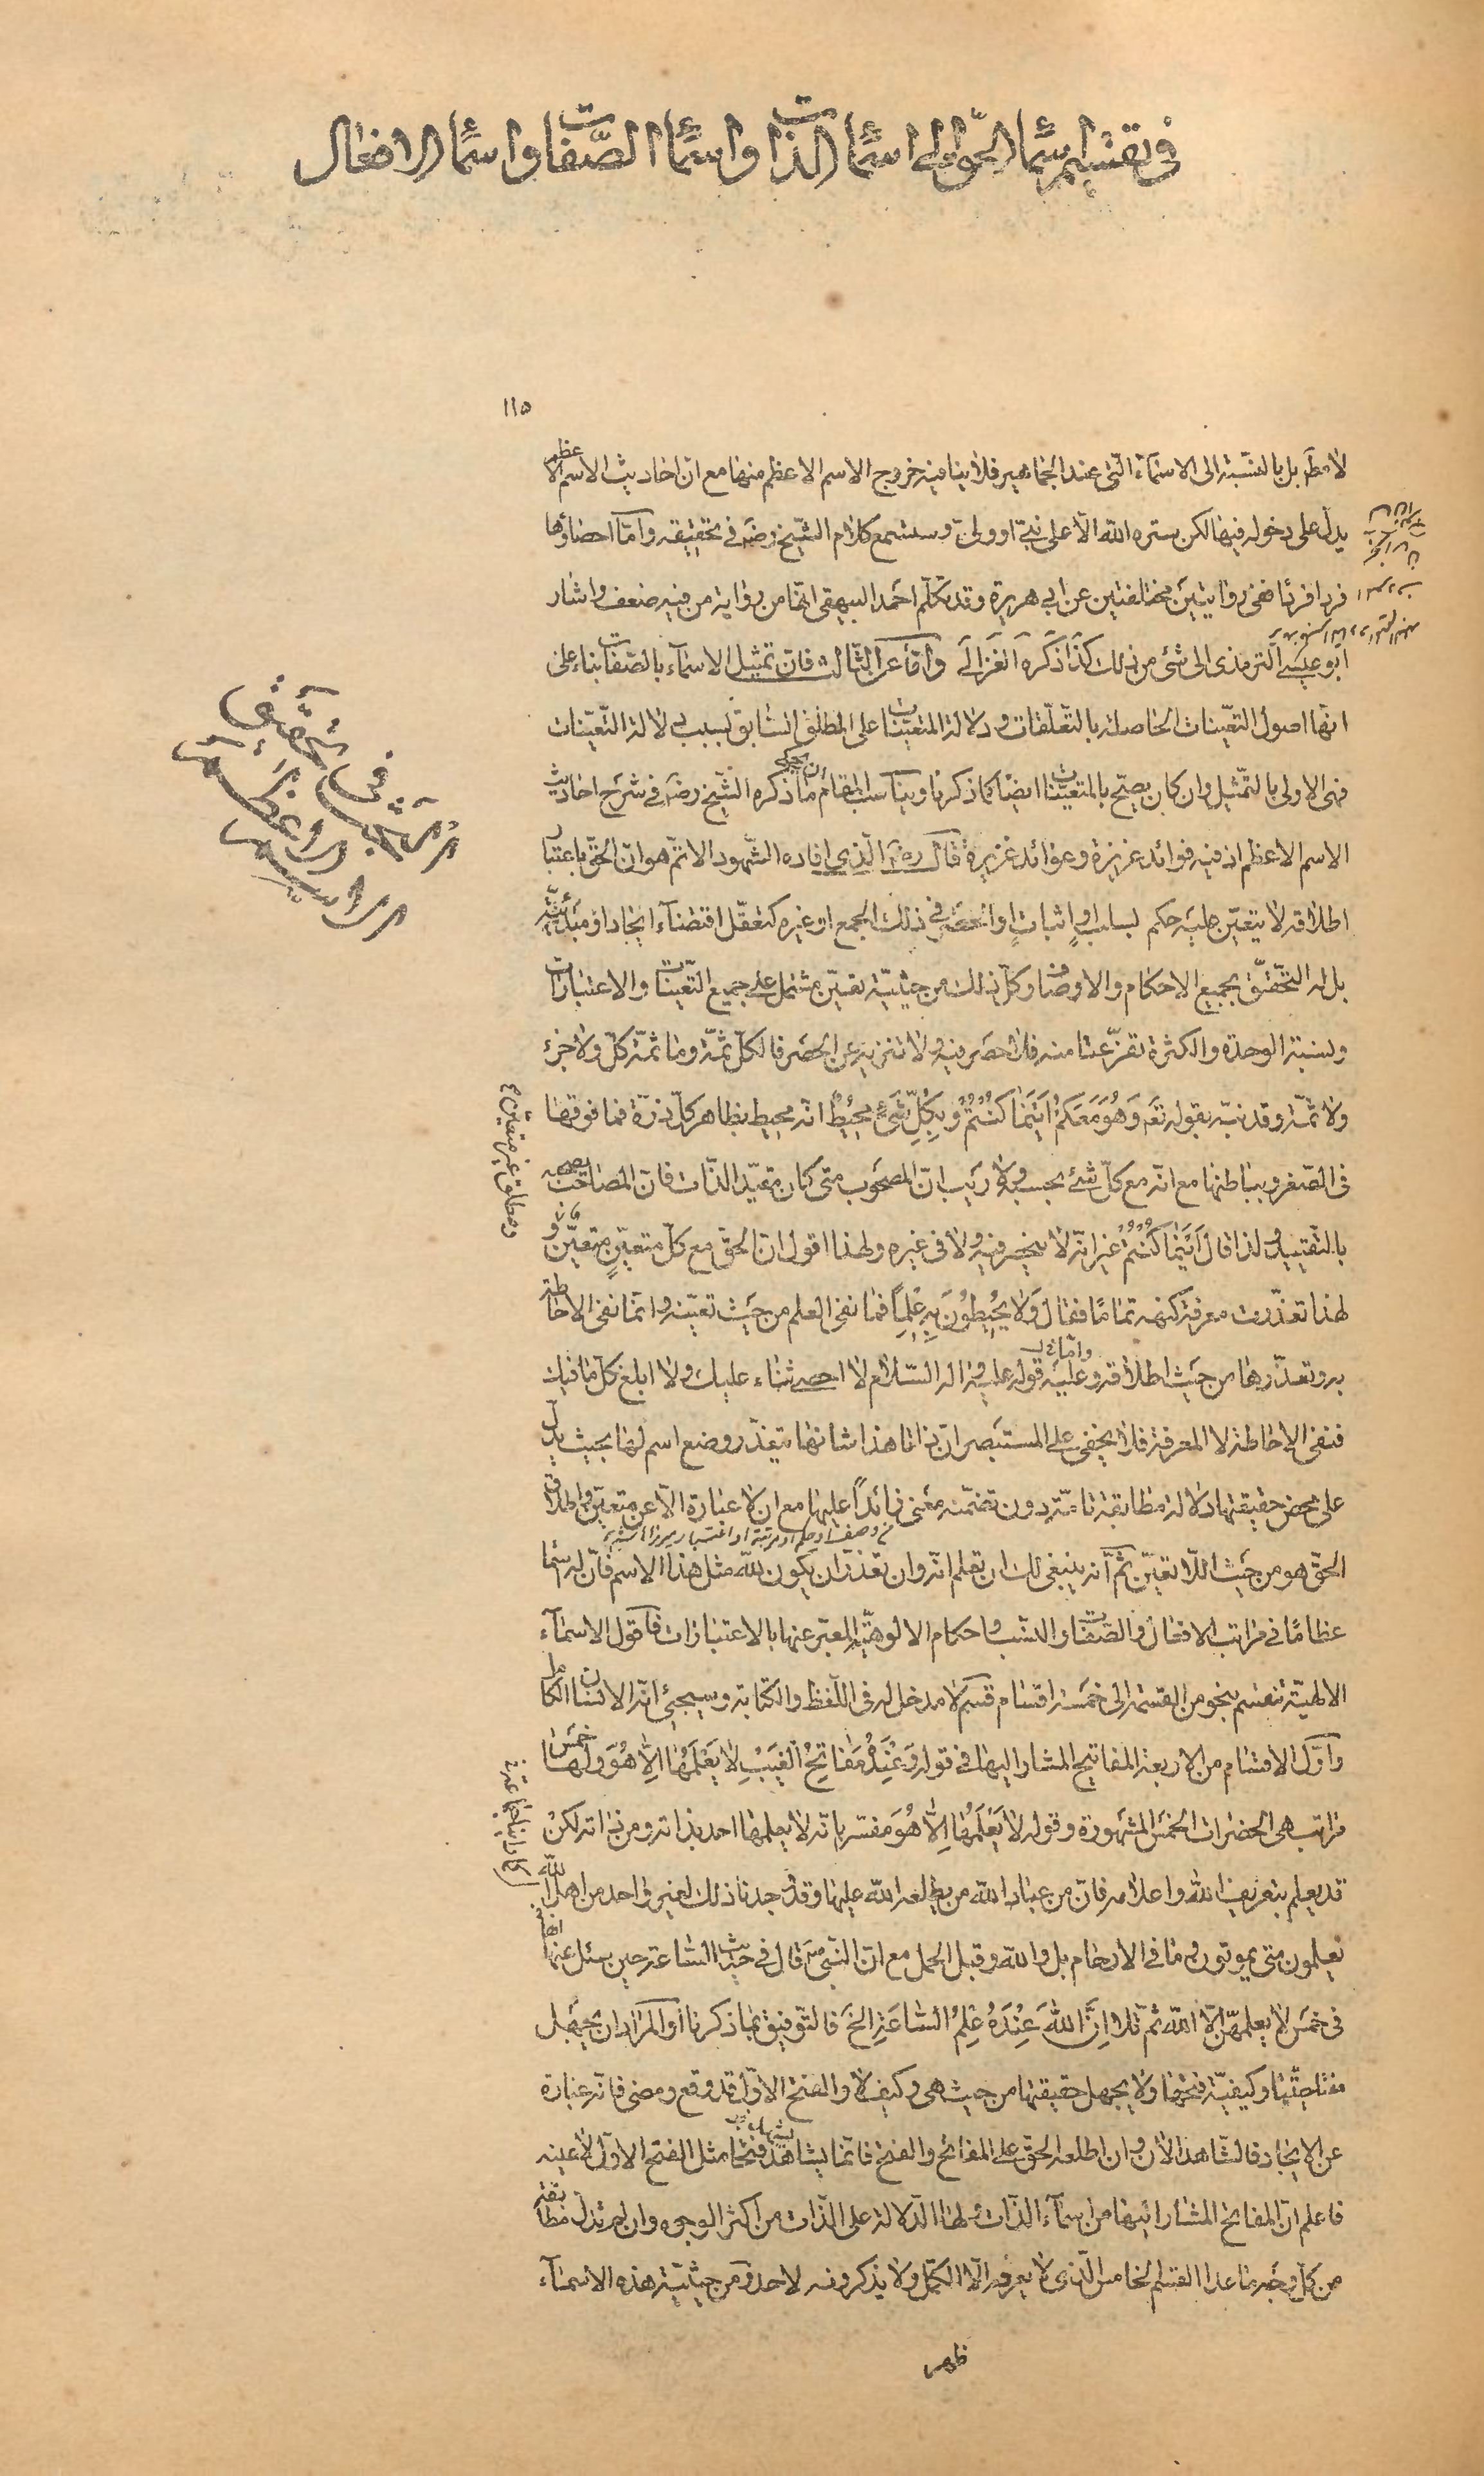 في تقسيم اسما الحق الى اسماء الذات واسماء الصفات واسماء الافعال
١١٥
لا مطم بل بالنسبة الى الاسماء التى عند الجماهير فلا ينافيه خروج الاسم الاعظم منها مع ان احاديث الاسم الاعظم
يدل على دخوله فيها لكن ستره الله الا على نبى او ولى وستسمع كلام الشيخ رضه فى تحقيقه واما احصاؤها
فردا فردا ففى روايتين مختلفتين عن ابى هريرة وقد تكلم احمد البيهقى انها من رواية من فيه ضعف واشار
ابو عيسى الترمذى الى شئ من ذلك كذا ذكره الغزالى واما عن الثالث فان تمثيل الاسماء بالصفات بناء على
انها اصول التعينات الحاصلة بالتعلقات ودلالة المتعينات على المطلق السابق بسبب دلالة التعينات
فهى الاولى بالتمثيل وان كان يصح بالمتعينات ايضا كما ذكرنا ويناسب المقام ان يحكى ما ذكره الشيخ رضه فى شرح احاديث
الاسم الاعظم اذ فيه فوائد عزيزة وعوائد غزيرة قال رضه الذى افاده الشهود الاتم هو ان الحق باعتبار
اطلاقه لا يتعين عليه حكم لسلب او اثبات او الحصر فى ذلك الجمع او غيره كتعقل اقتضاء ايجاد او مبدئية
بل له التحقق بجميع الاحكام والاوصاف وكل ذلك من حيثية تعين مشتمل على جميع التعينات والاعتبارات
ونسبة الوحدة والكثرة تفرعتا منه فلا حصر فيه ولا تنزيه عن الحصر فالكل ثمة وما ثمة كل ولا جزء
ولا ثمة وقد نبه بقوله تعه وَهُوَ مَعَكُمْ اَيْنَمَا كُنْتُمْ وبِكُلِّ شَىْءٍ مُحِيطٌ انه محيط بظاهر كل ذرة فما فوقها
فى الصغر وبباطنها مع انه مع كل شئ بحسبه ولا ريب ان المصحوب متى كان مقيد الذات فان المصاحب يصحبه
بالتقييد ولذا قال اَيْنَمَا كُنْتُمْ غير انه لا ينحصر فيه ولا فى غيره ولهذا اقول ان الحق مع كل متعين متعين و
لهذا تعذرت معرفة كنهه تماما فقال وَلَا يُحِيطُونَ بِهِ عِلْمًا فما نفى العلم من حيث تعينه وانما نفى الاحاطة
به وتعذرها من حيث اطلاقه وعليه قوله عليه وآله السلام لا احصى ثناء عليك ولا ابلغ كل ما فيك
فنفى الاحاطة لا المعرفة فلا يخفى على المستبصر ان ذاتا هذا شانها متعذر وضع اسم لها بحيث يدل
على محض حقيقتها دلالة مطابقة تامة دون تضمنه معنى زائدا عليها مع ان لا عبارة الا عن متعين واطلاق
الحق هو من حيث اللاتعين ثم انه ينبغى لك ان تعلم انه وان تعذر ان يكون لله مثل هذا الاسم فان له اسما
عظاما فى مراتب الافعال والصفات والنسب واحكام الالوهية المعبر عنها بالاعتبارات فاقول الاسماء
الالهية تنقسم بنحو من القسمة الى خمسة اقسام قسم لا مدخل له فى اللفظ والكتابة وسيجئ انه الانسان الكامل
واول الاقسام من الاربعة المفاتيح المشار اليها فى قوله وَعِنْدَهُ مَفَاتِحُ الْغَيْبِ لَا يَعْلَمُهَا اِلَّا هُوَ ولها خمس
مراتب هى الحضرات الخمس المشهورة وقوله لَا يَعْلَمُهَا اِلَّا هُوَ مفسر بانه لا يعلمها احد بذاته ومن ذاته لكن
قد يعلم بتعريف الله واعلامه فان من عباد الله من يطلعه الله عليها وقد وجدنا ذلك لغير واحد من اهل الله
يعلمون متى يموتون وما فى الارحام بل والله وقبل الحمل مع ان النبى صه قال فى حديث الساعة حين سئل عنها انها
فى خمس لا يعلمهن الا الله ثم تلا اِنَّ اللّٰهَ عِنْدَهُ عِلْمُ السَّاعَةِ الخ فالتوفيق بما ذكرنا او المراد ان يجهل
مفتاحيتها وكيفية فتحها ولا يجهل حقيقتها من حيث هى وكيف لا والفتح الاول قد وقع ومضى فانه عبارة
عن الايجاد فالشاهد الآن وان اطلعه الحق على المفاتح والفتح فانما يشاهد فتحا مثل الفتح الاول لا عينه
فاعلم ان المفاتح المشار اليها من اسماء الذات ولها الدلالة على الذات من اكثر الوجوه وان لم تدل مطابقة
من كل وجه ما عدا القسم الخامس الذى لا يعرفه الا الكمل ولا يذكرونه لاحد ومن حيثية هذه الاسماء
ظهر
فى تحقيق
الاسم الاعظم
ومطلق غير متعين